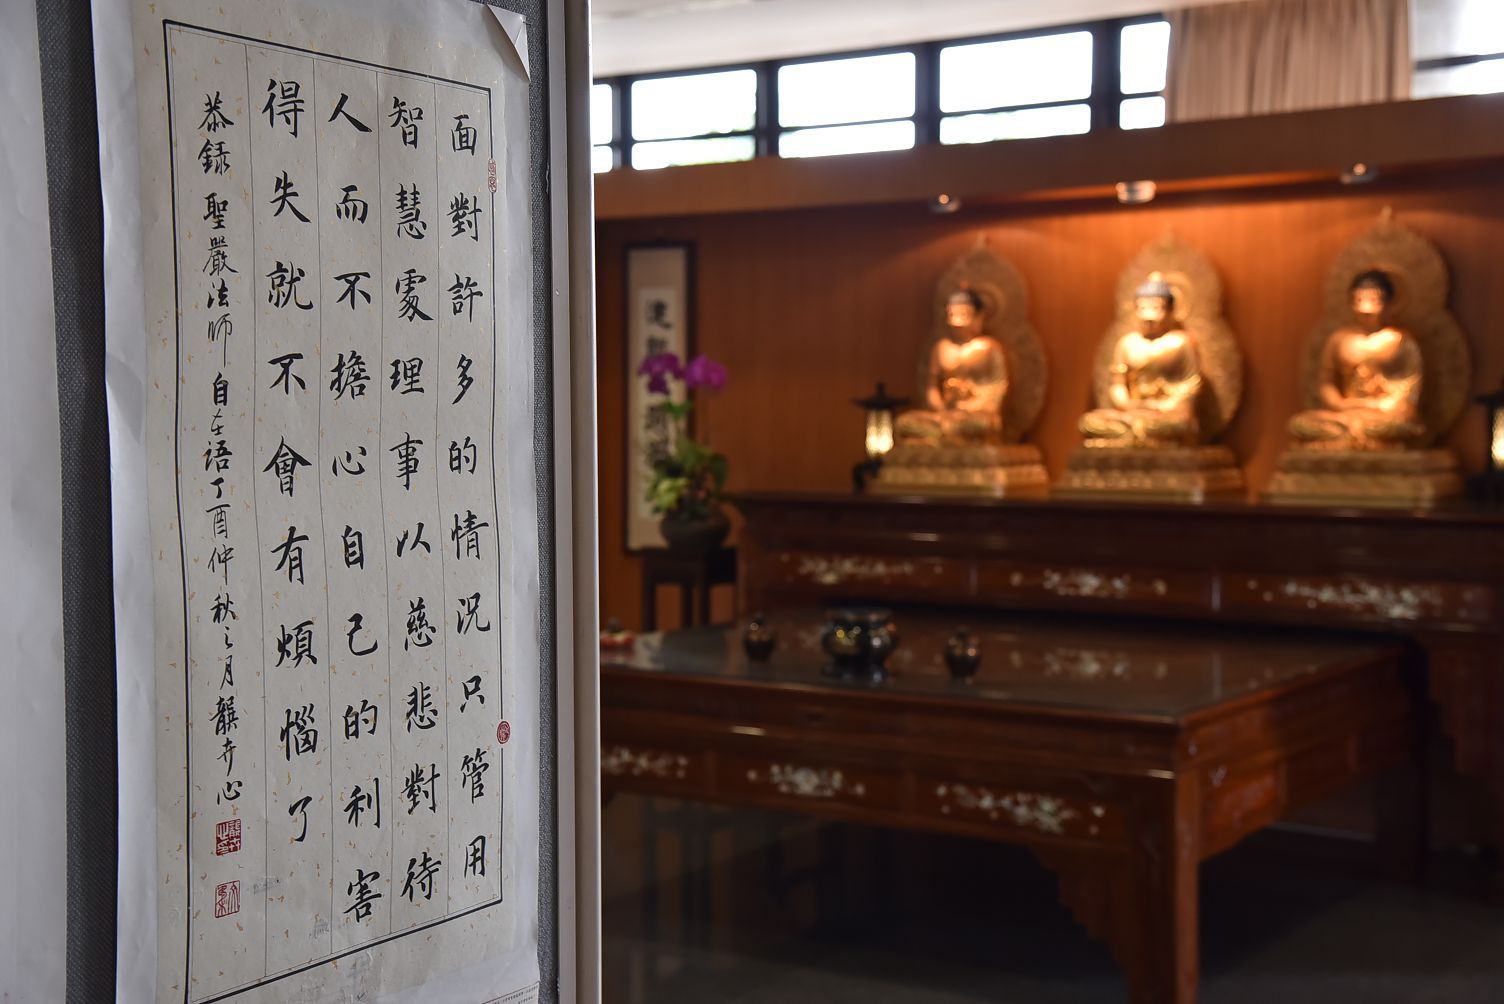 面對許多的情況只管用
智慧處理事以慈悲對待
人而不擔心自己的利害
得失就不會有煩惱了
恭録聖嚴法師自在語丁酉仲秋之月龔卉心